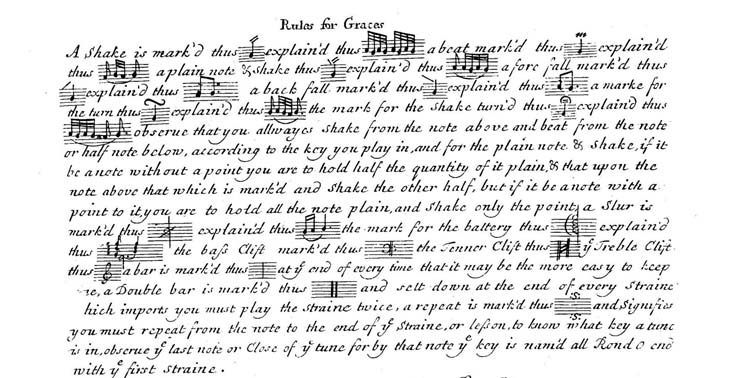 Rules for Graces
A Shake is mark'd thus explain'd thus a beat mark'd thus explain'd
thus a plain note & shake thus explain'd thus a fore fall mark'd thus
explain'd thus a back fall mark'd thus explain'd thus a marke for
the turn thus explain'd thus the mark for the shake turn'd thus explain'd thus
observe that you allwayes shake from the note above and beat from the note
or half note below, according to the key you play in, and for the plain note & Shake, if it
be a note without a point you are to hold half the quantity of it plain, & that upon the
note above that which is mark'd and Shake the other half, but if it be a note with a
point to it, you are to hold all the note plain, and Shake only the point, a Slur is
mark'd thus explain'd thus the mark for the battery thus explain'd
thus the bass Clift mark'd thus the Tenner Clift thus ye Treble Clift
thus a bar is mark'd thus at ye end of every time that it may be the more easy to keep
a Double bar is mark'd thus and sett down at the end of every Straine
hich imports you must play the Straine twice, a repeat is mark'd thus :S: and, Signifies
you must repeat from the note to the end of ye Straine, or lesson, to know what key a tune
is in, observe ye last note or Close of ye tune for by that note ye key is nam'd all Rond o end
with ye first straine.